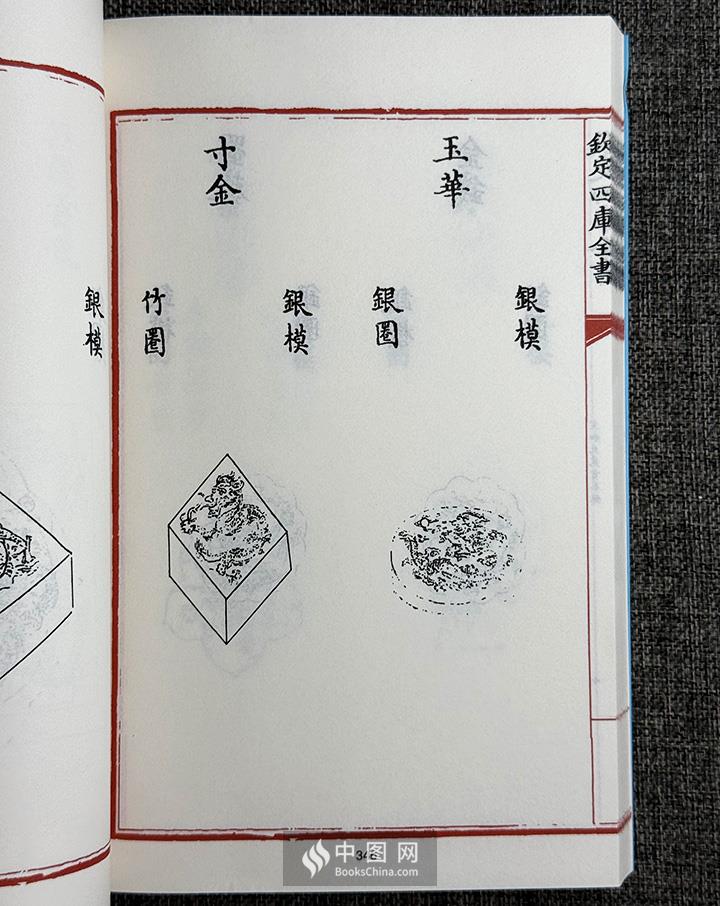 欽定四庫全書
玉華
銀模
銀圈
寸金
銀模
竹圈
銀模
中图网
BooksChina.com